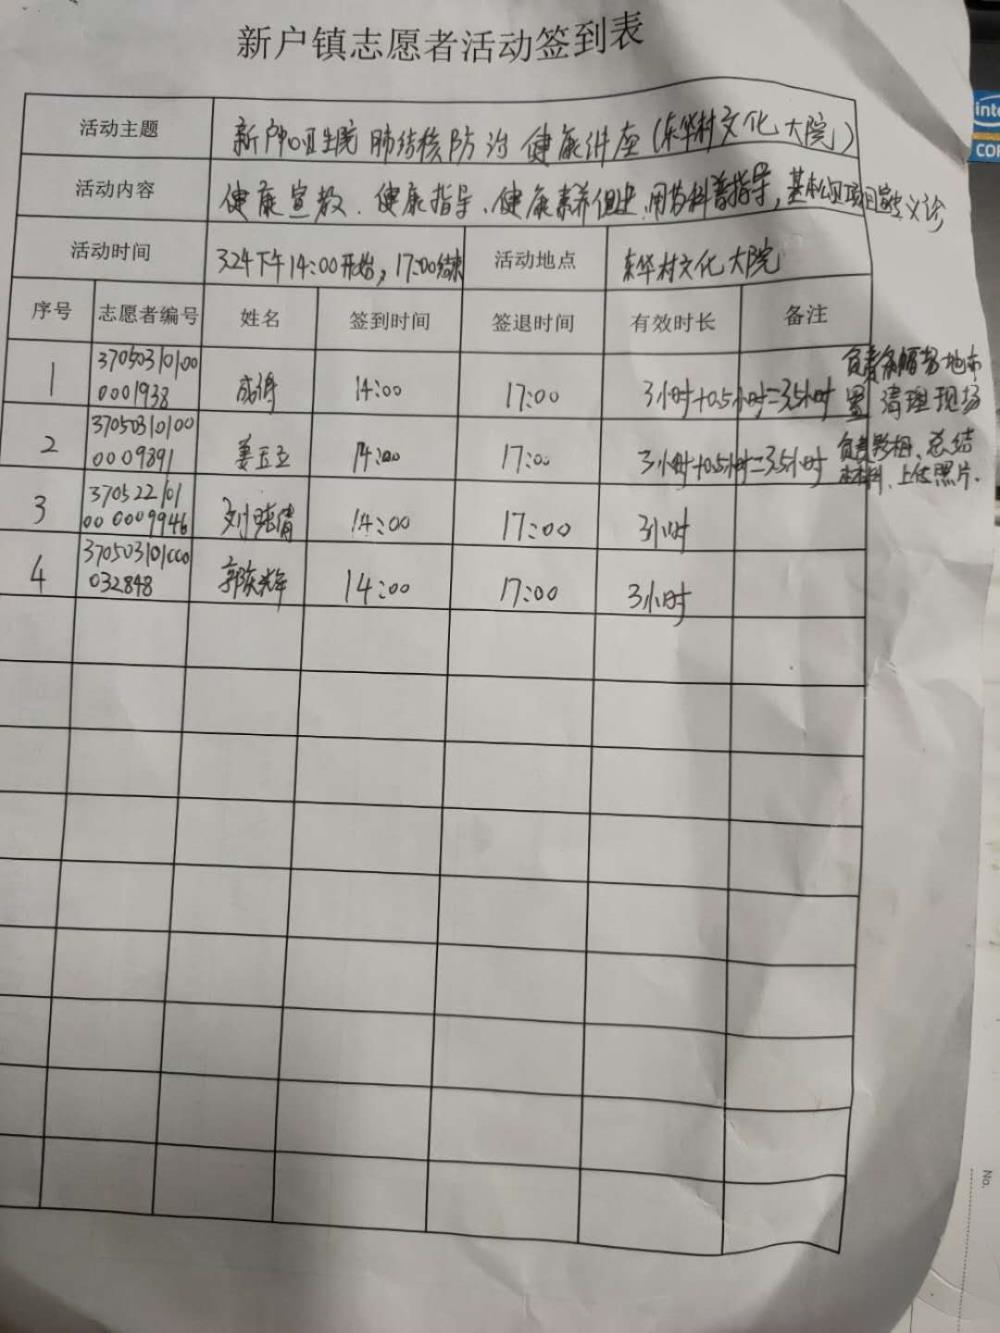 新户镇志愿者活动签到表
活动主题 新户中心卫生院 肺结核防治 健康讲座(东华村文化大院)
活动内容 健康宣教、健康指导、健康素养促进、用药科普指导,基本公卫项目 义诊
活动时间 3.24下午14:00开始,17:00结束 活动地点 东华村文化大院
序号 志愿者编号 姓名 签到时间 签退时间 有效时长 备注
1 37050310100 14:00 17:00 3小时+0.5小时=3.5小时 负责条幅场地布
0001938 置 清理现场
2 37050310100 姜玉立 14:00 17:00 3小时+0.5小时=3.5小时 负责影相、总结
0009891 材料、上传照片.
3 370522101 14:00 17:00 3小时
00 0009946
4 370503101000 郭庆辉 14:00 17:00 3小时
032848
intel
COR
No.